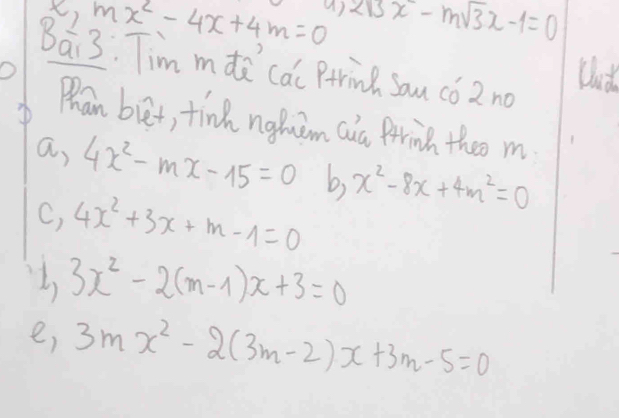 mx² - 4x + 4m = 0
2√3x² - m√3x - 1 = 0
Bài 3: Tìm m để các Ptrình sau có 2 no
Phân biệt, tính nghiệm của Ptrình theo m.
a, 4x² - mx - 15 = 0 b, x² - 8x + 4m² = 0
c, 4x² + 3x + m - 1 = 0
d, 3x² - 2(m-1)x + 3 = 0
e, 3mx² - 2(3m-2)x + 3m - 5 = 0